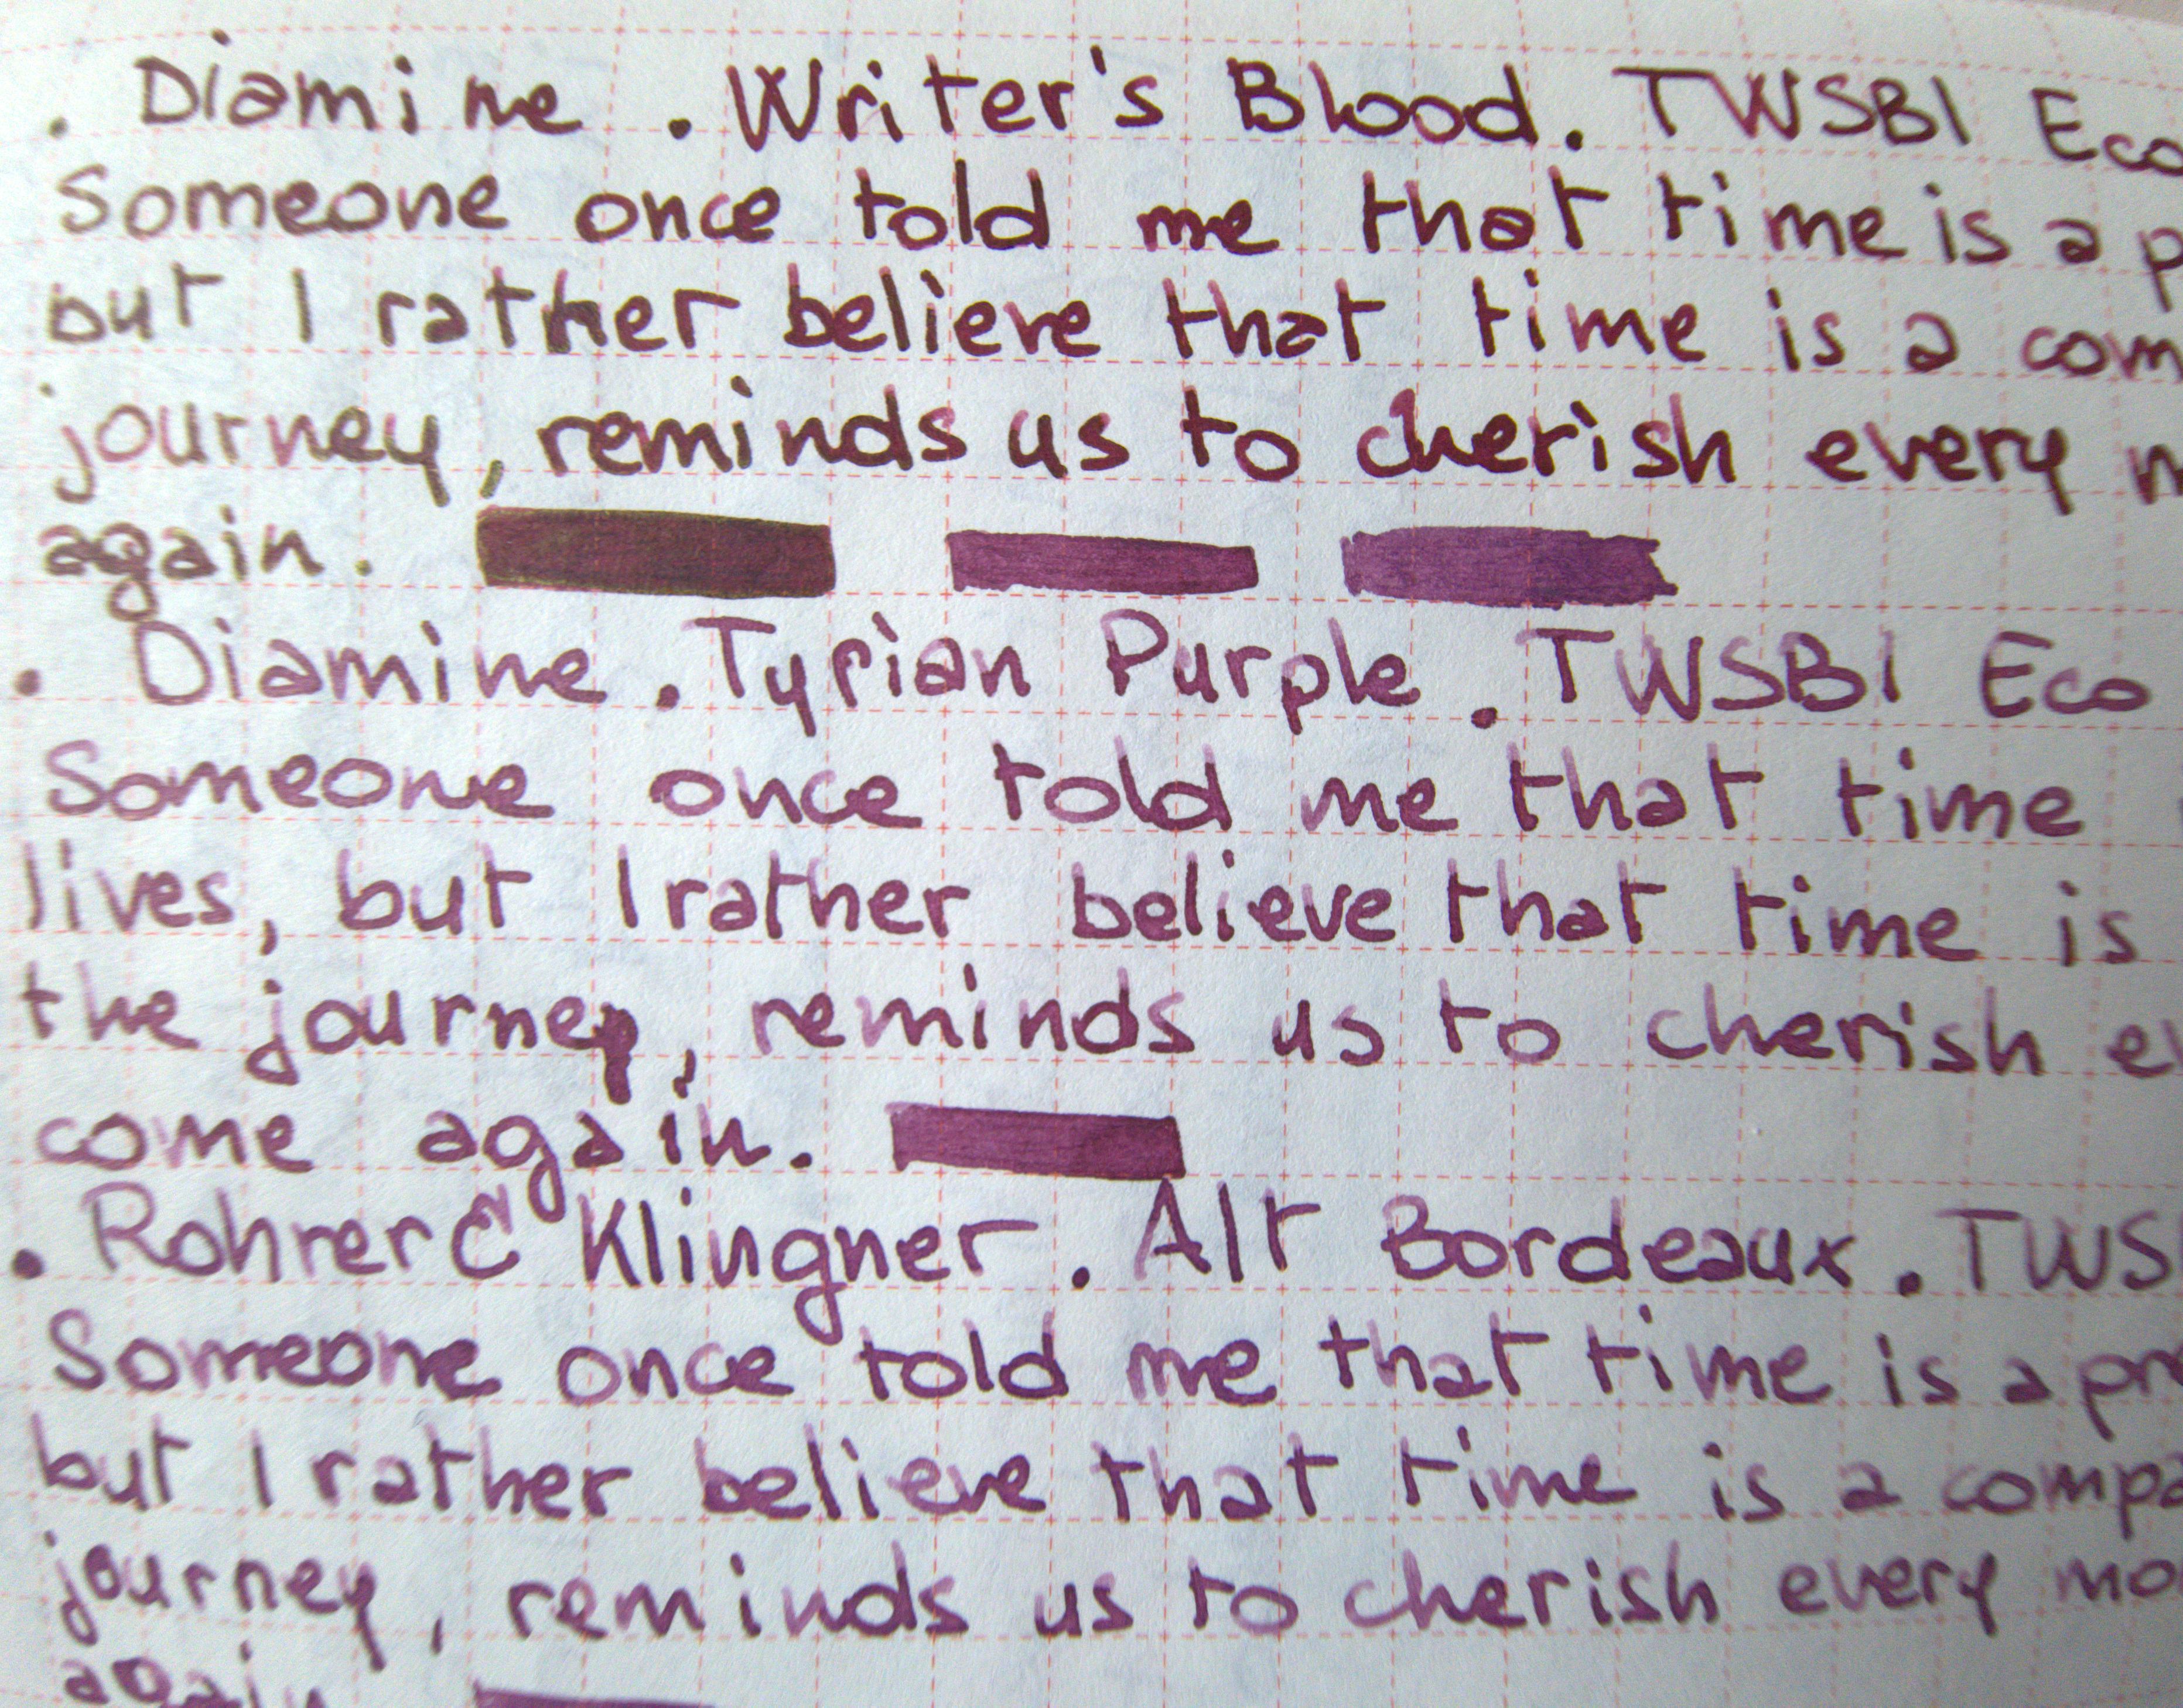 . Diamine . Writer's Blood. TWSBI Eco
Someone once told me that time is a p
but I rather believe that time is a com
journey, reminds us to cherish every m
again.
. Diamine . Tyrian Purple . TWSBI Eco
Someone once told me that time
lives, but I rather believe that time is
the journey, reminds us to cherish ev
come again.
. Rohrer & Klingner . Alt Bordeaux . TWSB
Someone once told me that time is a pre
but I rather believe that time is a compa
journey, reminds us to cherish every mo
again